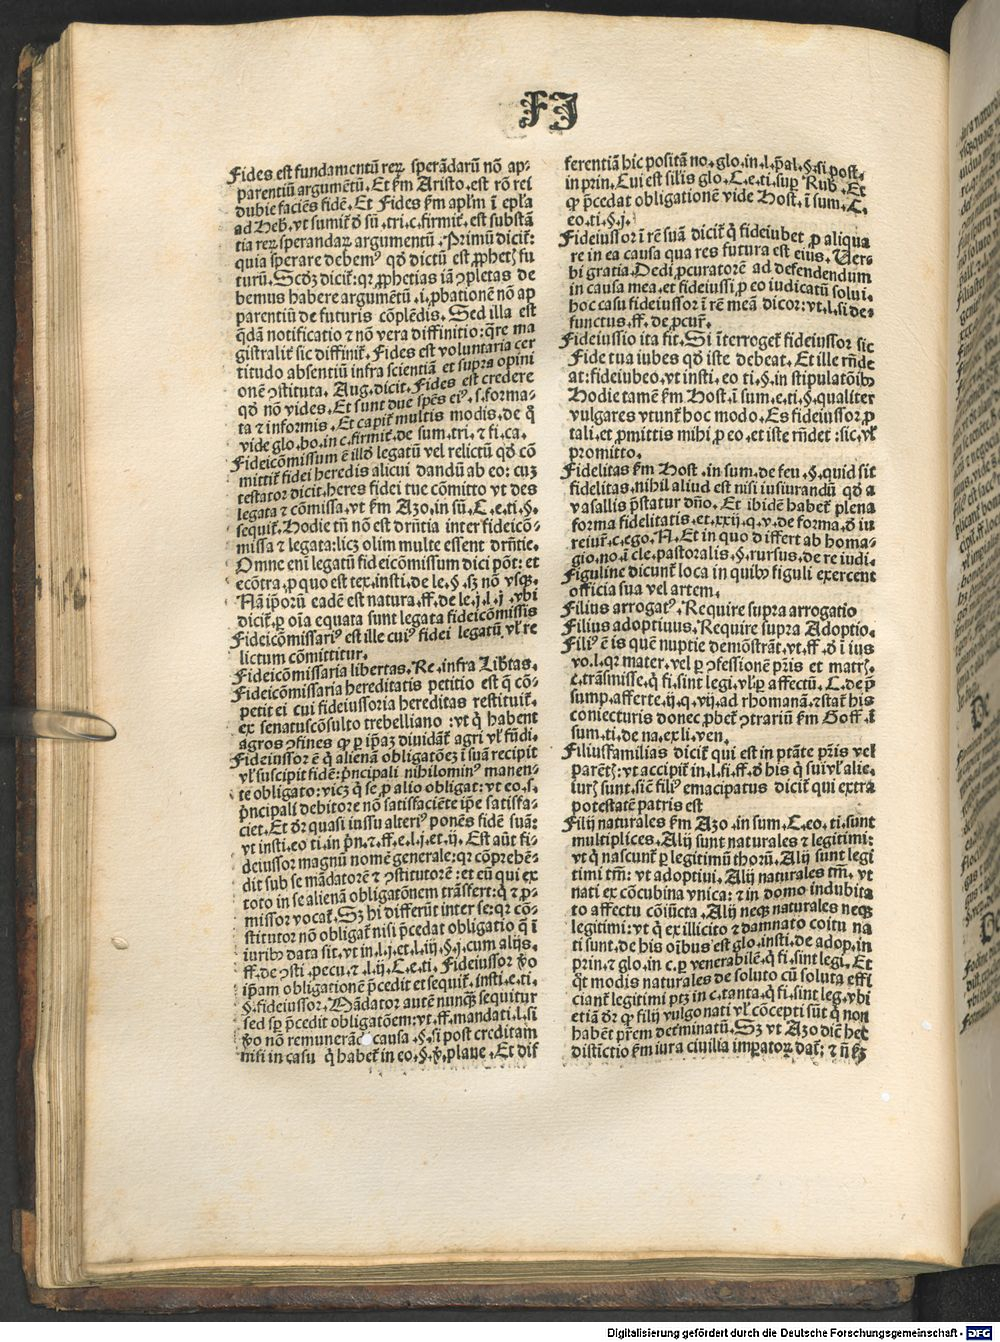 FI
Fides est fundamentū reꝝ sperādarū nō ap-
parentiū argumētū. Et ẜm Aristo. est rō rei
dubie faciēs fidē. Et Fides ẜm aplm̄ ī epl̄a
ad Heb̾. vt sumit᷑ đ sū. tri. c. firmit᷑. est substā
tia reꝝ sperandaꝝ argumentū. Primū dicit᷑:
quia sperare debemꝰ qđ dictū est ꝓphetꝫ fu
turū. Scđꝫ dicit᷑: qꝛ ꝓphetias iā ꝯpletas de
bemus habere argumētū .i. ꝓbationē nō ap
parentiū de futuris cōplēdis. Sed illa est
q̄dā notificatio ⁊ nō vera diffinitio: q̄re ma
gistralit᷑ sic diffinit᷑. Fides est voluntaria cer
titudo absentiū infra scientiā et supra opini
onē ꝯstituta. Aug. dicit. Fides est credere
qđ nō vides. Et sunt due spēs eiꝰ. s. forma-
ta ⁊ informis. Et capit᷑ multis modis. de q̄
vide glo. bo. in c. firmit᷑. de sum. tri. ⁊ fi. ca.
Fideicōmissum ē illđ legatū vel relictū qđ cō
mittit᷑ fidei heredis alicui dandū ab eo: cuꝫ
testator dicit. heres fidei tue cōmitto vt des
legata ⁊ cōmissa. vt ẜm Azo. in sū. C. e. ti. §.
sequit᷑. Hodie tn̄ nō est dr̄ntia inter fideicō-
missa ⁊ legata: licꝫ olim multe essent dr̄ntie.
Omne eni legatū fideicōmissum dici pōt: et
ecōtra. ꝓ quo est tex. insti. de le. § .sꝫ nō vsqꝫ.
Nā ip̄orū eadē est natura. ff. de le. j. l. j .vbi
dicit᷑. ꝑ oīa equata sunt legata fideicōmissis
Fideicōmissariꝰ est ille cuiꝰ fidei legatū vl̄ re
lictum cōmittitur.
Fideicōmissaria libertas. Re. infra Lib̄tas.
Fideicōmissaria hereditatis petitio est q̄ cō-
petit ei cui fideiussoria hereditas restituit᷑.
ex senatuscōsulto trebelliano: vt q̄ habent
agros ꝯfines ꝙ ꝑ ip̄aꝫ diuidāt᷑ agri vl̄ fūdi.
Fideiussor ē q̄ alienā obligatōeꝫ ī suā recipit
vl̄ suscipit fidē: p̄ncipali nihilominꝰ manen-
te obligato: vicꝫ q̄ se ꝓ alio obligat: vt eo. s.
p̄ncipali debitore nō satisfaciēte ip̄e satisfa-
ciet. Et dr̄ quasi iussu alteriꝰ ponēs fidē suā:
vt insti. eo ti. in p̄n. ⁊ ff. e. l. j. et. ij. Est aūt fi-
deiussor magnū nomē generale: qꝛ cōprehē-
dit sub se mādatorē ⁊ ꝯstitutorē: et eū qui ex
toto in se alienā obligatōnem trāsfert: q̄ ⁊ ꝓ-
missor vocat᷑. Sꝫ hi differūt inter se: qꝛ cō-
stitutor nō obligat᷑ nisi p̄cedat obligatio q̄ ī
iuribꝰ data sit. vt in. l. j. et. l. iij. §. j. cum alijs.
ff. de ꝯsti. pecu. ⁊ l. ij. C. e. ti. Fideiussor v̾o
ip̄am obligationē p̄cedit et sequit᷑. insti. e. ti.
§. fideiussor. Mādator autē nunqꝫ sequitur
sed sꝑ p̄cedit obligatōem: vt. ff. mandati. l. si
v̾o nō remunerāe causa. §. si post creditam
nisi in casu q̄ habet᷑ in eo. §. v̾. plane. Et dif
ferentiā hic positā no. glo. in. l. p̄al. §. si post.
in prin. Cui est sil̄is glo. C. e. ti. suꝑ Rub. Et
ꝙ p̄cedat obligationē vide Host. ī sum. C.
eo. ti. §. j.
Fideiussor ī rē suā dicit᷑ q̄ fideiubet ꝓ aliqua
re in ea causa qua res futura est eius. Uer-
bi gratia. Dedi ꝓcuratorē ad defendendum
in causa mea. et fideiussi ꝓ eo iudicatū solui.
hoc casu fideiussor ī rē meā dicor: vt. l. si de-
functus. ff. de ꝓcur̄.
Fideiussio ita fit. Si īterroget᷑ fideiussor sic
Fide tua iubes qđ iste debeat. Et ille rn̄de
at: fideiubeo. vt insti. eo ti. §. in stipulatōibꝰ
Hodie tamē ẜm Host. ī sum. e. ti. §. qualiter
vulgares vtunt᷑ hoc modo. Es fideiussor ꝓ
tali. et ꝓmittis mihi ꝓ eo. et iste rn̄det: sic. vl̄
promitto.
Fidelitas ẜm Host. in sum. de feu. §. quid sit
fidelitas. nihil aliud est nisi iusiurandū qđ a
vasallis p̄statur dn̄o. Et ibidē habet᷑ plena
forma fidelitatis. et. xxij. q. v. de forma. đ iu
reiur̄. c. ego. N. Et in quo differt ab homa-
gio. no. ī cle. pastoralis. §. rursus. de re iudi.
Figuline dicunt᷑ loca in quibꝰ figuli exercent
officia sua vel artem.
Filius arrogatꝰ. Require supra arrogatio
Filius adoptiuus. Require supra Adoptio.
Filiꝰ ē is quē nuptie demōstrāt. vt. ff. đ ī ius
vo. l. qꝛ mater. vel ꝑ ꝯfessionē pr̄is et matrꝫ.
e. trāsmisse. q̄ fi. sint legi. vl̄ ꝑ affectū. C. de p̄
sump. afferte. ij. q. vij. ad rhomanā. ⁊ stat᷑ his
coniecturis donec ꝓbet᷑ ꝯtrariū ẜm Goff. ī
sum. ti. de na. ex li. ven.
Filiusfamilias dicit᷑ qui est in ptāte pr̄is vel
parētꝫ: vt accipit᷑ in. l. fi. ff. đ his q̄ sui vl̄ alie.
iurꝫ sunt. sic̄ filiꝰ emacipatus dicit᷑ qui extra
potestatē patris est
Filij naturales ẜm Azo. in sum. C. eo. ti. sunt
multiplices. Alij sunt naturales ⁊ legitimi:
vt q̄ nascunt᷑ ꝑ legitimū thorū. Alij sunt legi
timi tm̄: vt adoptiui. Alij naturales tm̄. vt
nati ex cōcubina vnica: ⁊ in domo indubita
to affectu cōiūcta. Alij neqꝫ naturales neqꝫ
legitimi: vt q̄ ex illicito ⁊ damnato coitu na
ti sunt. de his oībus est glo. insti. de adop. in
prin. ⁊ glo. in c. ꝑ venerabilē. q̄ fi. sint legi. Et
q̄t modis naturales de soluto cū soluta effi
ciant᷑ legitimi ptꝫ in c. tanta. q̄ fi. sint leg. vbi
etiā dr̄ ꝙ filij vulgo nati vl̄ cōcepti sūt q̄ non
habēt pr̄em det̾minatū. Sꝫ vt Azo dic̄ hec
distictio ẜm iura ciuilia imꝑatoꝝ dat᷑: ⁊ n̄ ẜꝫ